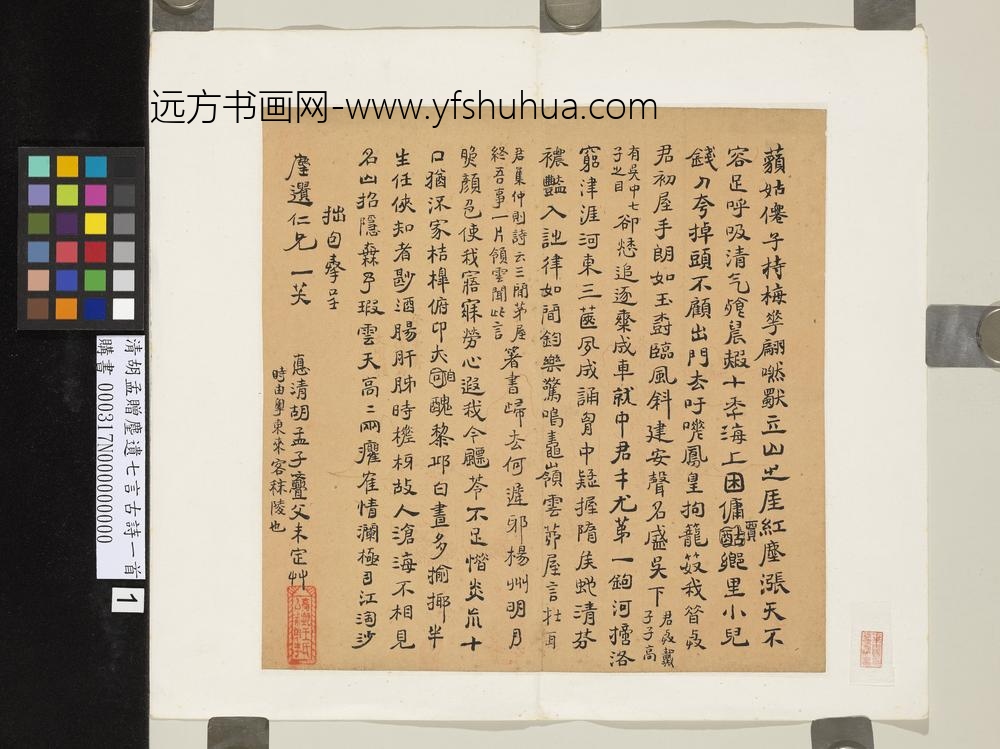 远方书画网-www.yfshuhua.com
藐姑僊子持梅華翩然獸立山之厓紅塵漲天不
容足呼吸清气飧晨霞十年海上困傭酤賈繩里小兒
錢刀夸掉頭不顧出門去吁嗟鳳皇拘籠笯我昝與
君初屋手朗如玉樹臨風斜建安聲名盛吳下君與戴子子高
有吳中七子之目卻愁追逐乘成車就中君才尤第一鉤河擿洛
窮津涯河東三篋夙成誦胷中疑握隋矦蛇清芬
襛豔入詘律如聞鈞樂驚鳴鼃嶺雲茆屋言在耳
君集仲則詩云三間茅屋終吾事一片領雲聞此言箸書歸去何遲邪楊州明月
脆顏色使我寤寐勞心遐我今飄苓不足惜炎荒十
口猶深家桔槔俯卬大自醜黎邱白晝多揄揶半
生任俠知者尟酒腸肝肺時槎枒故人滄海不相見
名山招隱森丹瑕雲天高二兩癯隺情瀾極目江淘沙
拙句奉呈
塵遺仁兄一笑
悳清胡孟子㢘父未定艸
時由粵東來容秣陵也
清胡孟贈塵遺七言古詩一首
購書 000317N000000000
1